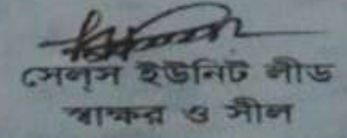 সেলস ইউনিট লীড
স্বাক্ষর ও সীল